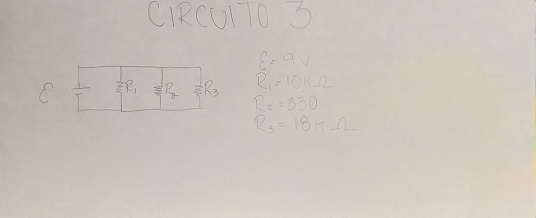 CIRCUITO 3
ε
R₁
R₂
R₃
ε = 9 v
R₁ = 10K Ω
R₂ = 550
R₃ = 18K Ω